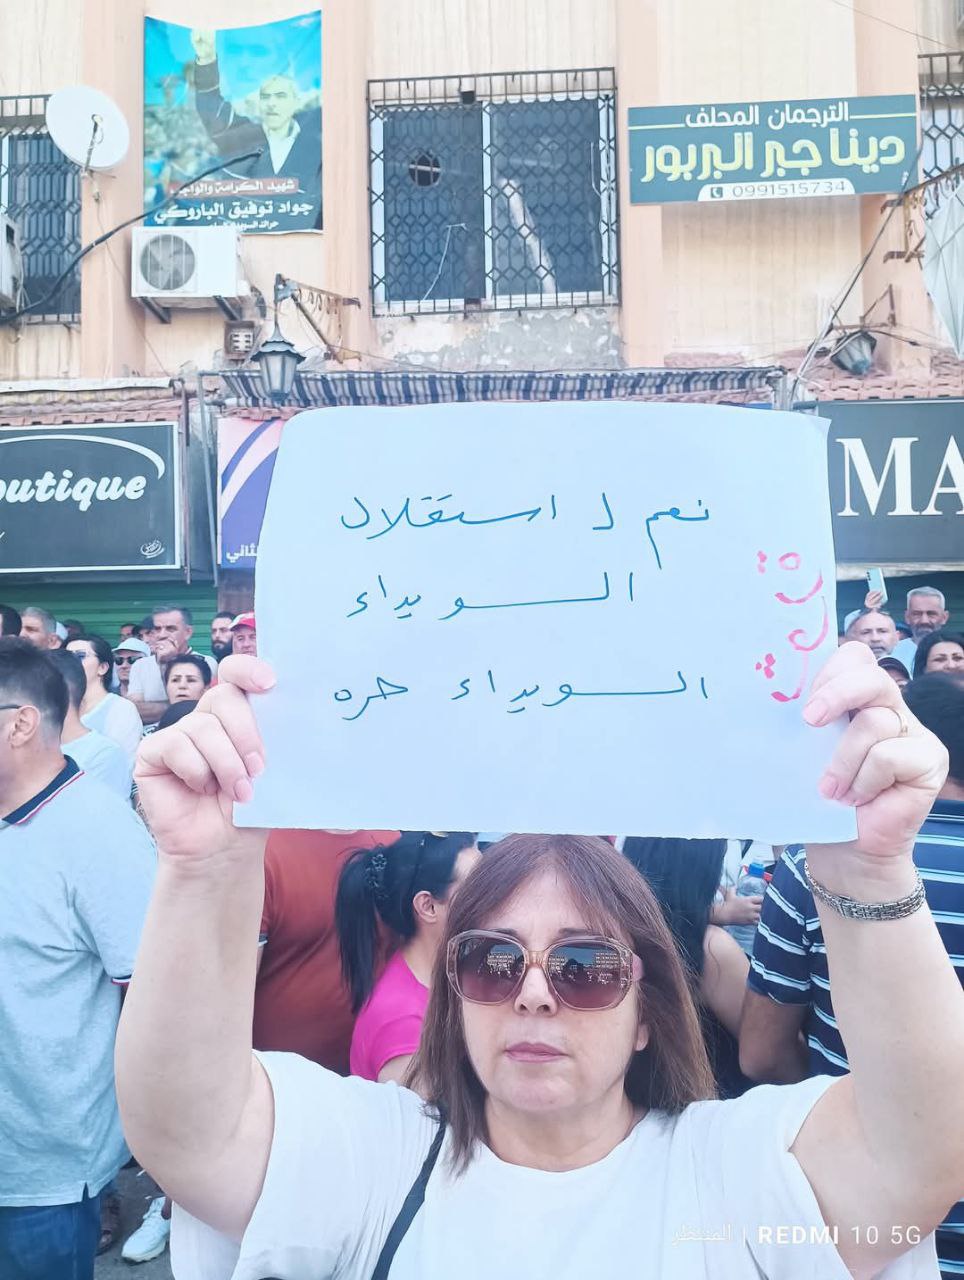 شهيد الكرامة والواجب
جواد توفيق الباروكي
الترجمان المحلف
دينا جبر البربور
0991515734
outique
MA
نعم ل استقلال
السويداء
السويداء حره
المنتظر | REDMI 10 5G